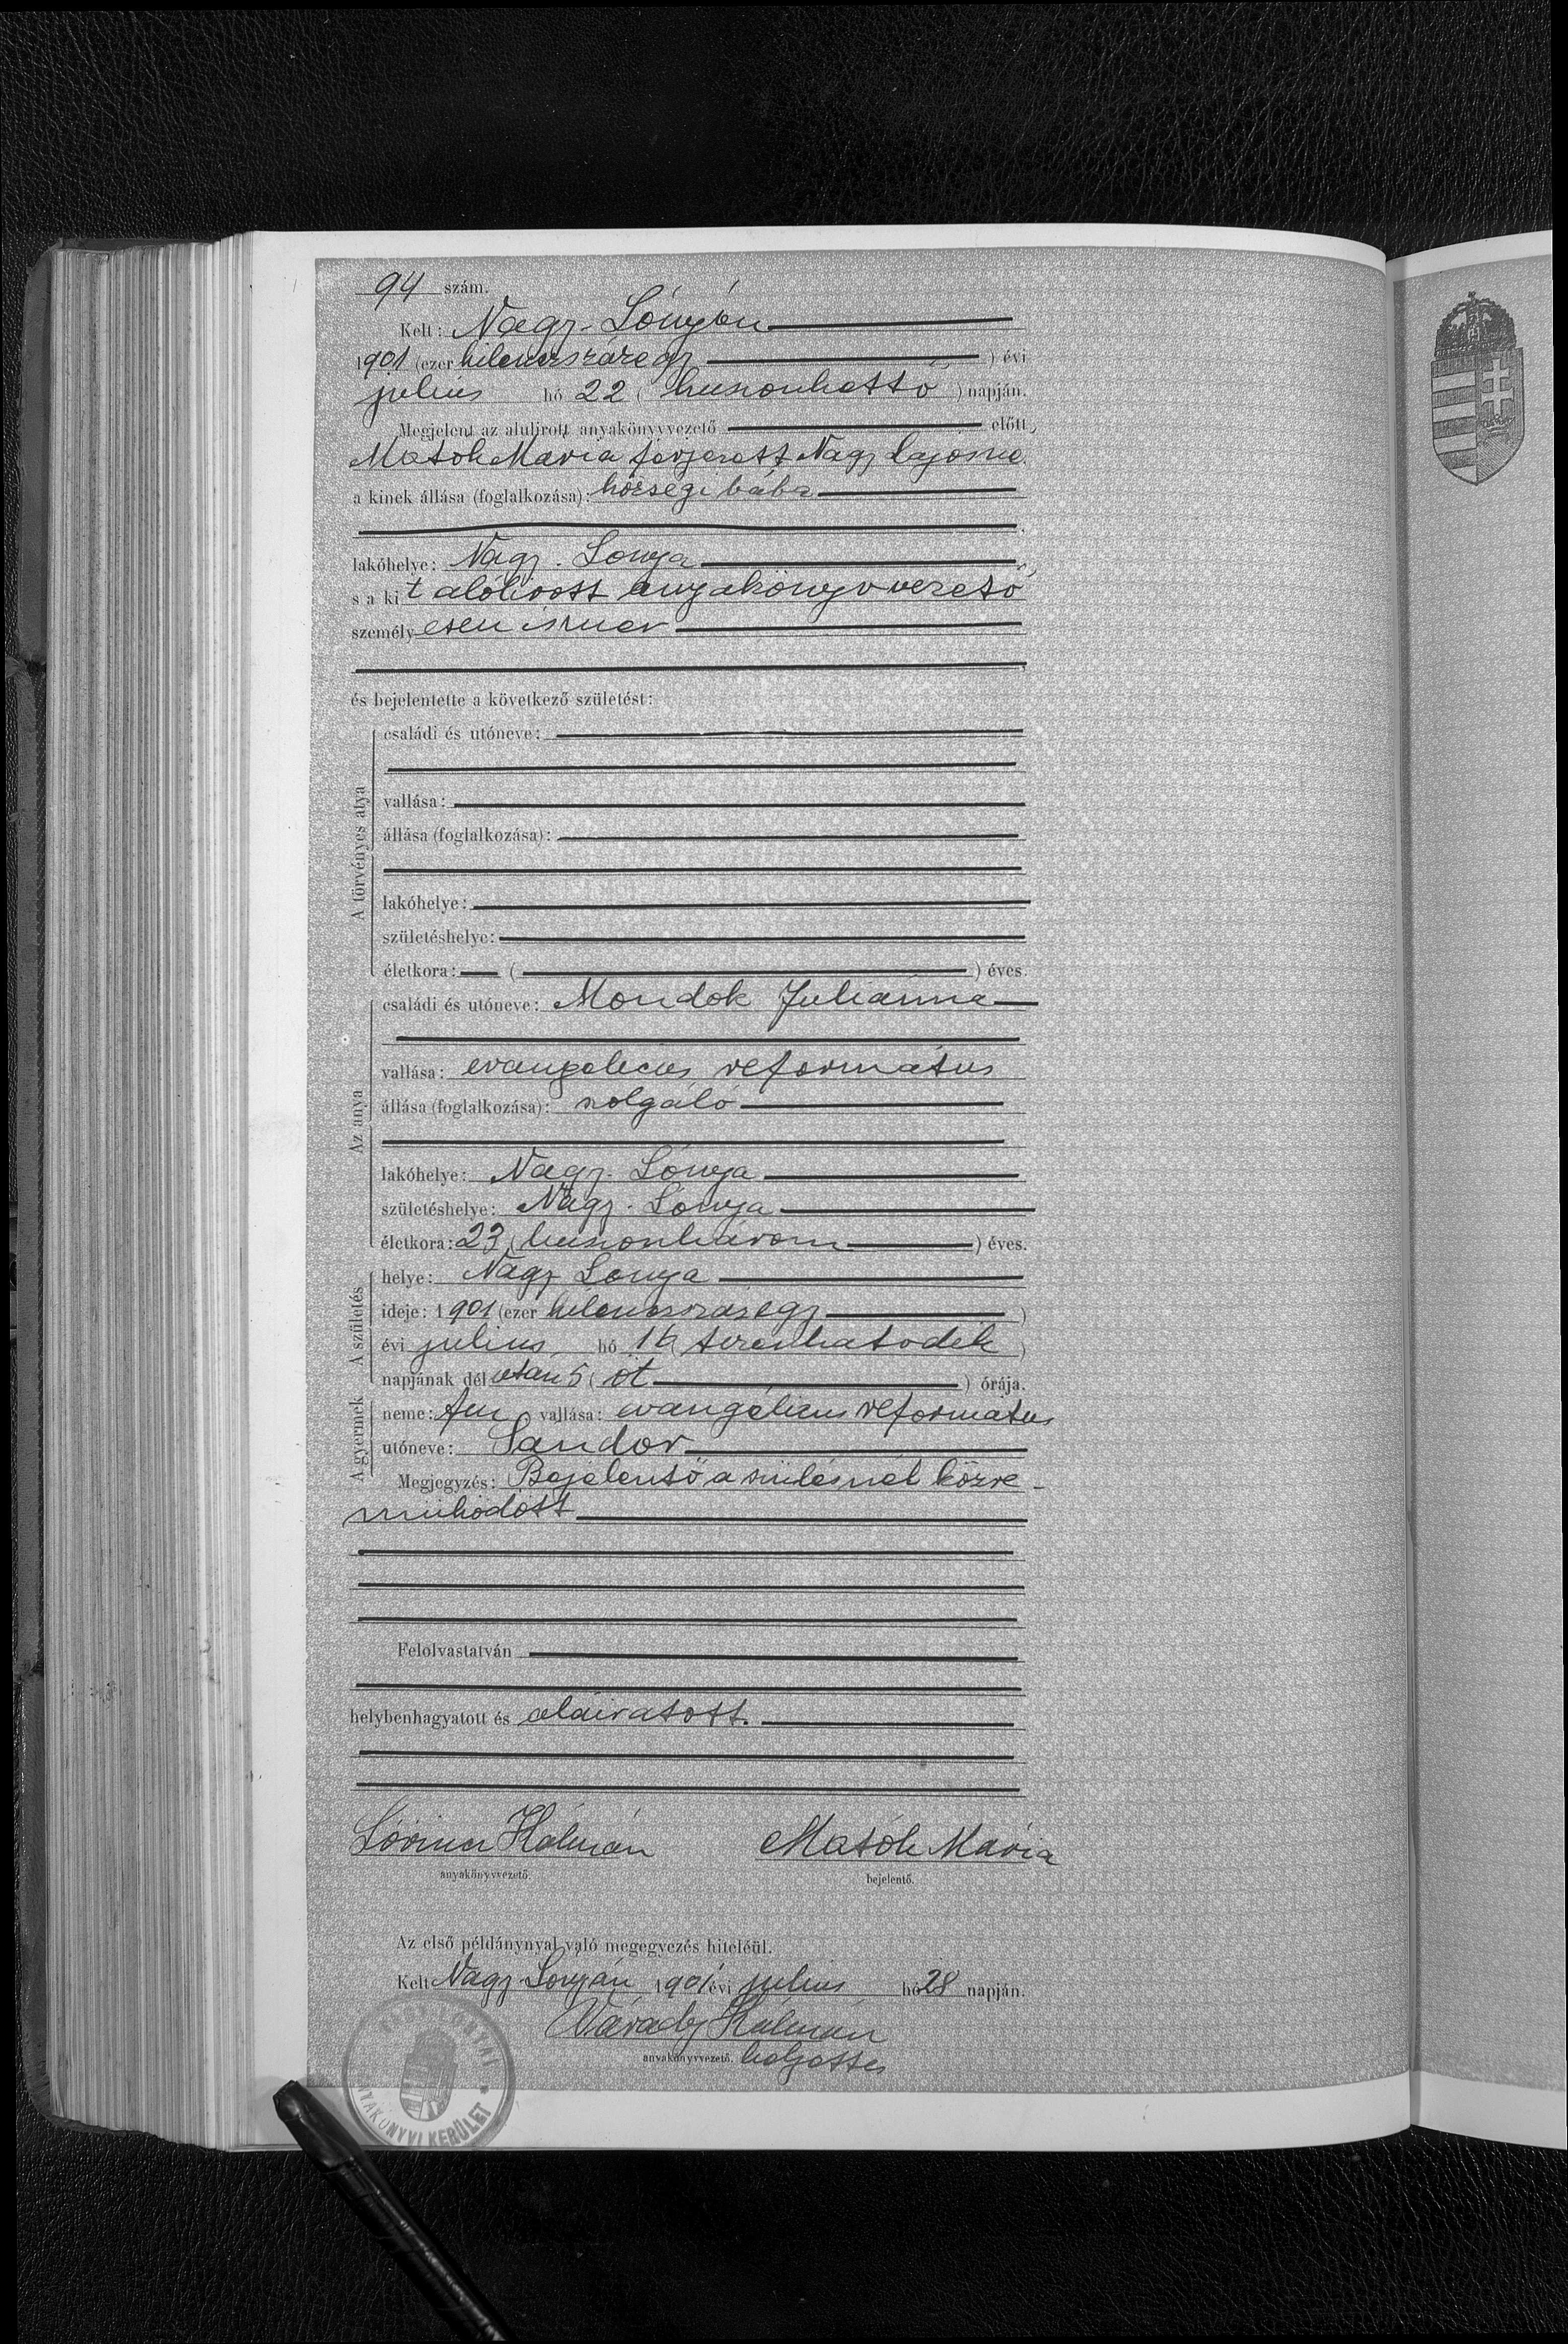 94 szám.
Kelt: Nagy-Lónyán
1901 (ezer kilenczszázegy) évi
julius hó 22 (huszonkettő) napján.
Megjelent az alulirott anyakönyvvezető előtt,
Matók Mária férjezett Nagy Lajosné
a kinek állása (foglalkozása): községi bába
lakóhelye: Nagy-Lónya
s a kit alólirott anyakönyvvezető
személyesen ismer
és bejelentette a következő születést:
A törvényes atya
családi és utóneve:
vallása:
állása (foglalkozása):
lakóhelye:
születéshelye:
életkora: ( ) éves.
Az anya
családi és utóneve: Mondok Juliánna
vallása: evangelicus református
állása (foglalkozása): szolgáló
lakóhelye: Nagy-Lónya
születéshelye: Nagy-Lónya
életkora: 23 (huszonhárom) éves.
A születés
helye: Nagy Lónya
ideje: 1901 (ezer kilenczszázegy)
évi julius hó 16 (tizenhatodik)
napjának dél után 5 (öt) órája.
A gyermek
neme: fiu, vallása: evangélicus református
utóneve: Sándor
Megjegyzés: Bejelentő a szülésnél közre-
működött
Felolvastatván
helybenhagyatott és aláiratott.
Lőrincz Kálmán Matók Mária
anyakönyvvezető. bejelentő.
Az első példánynyal való megegyezés hiteléül.
Kelt Nagy Lónyán 1901 évi julius hó 28 napján.
Várady Kálmán
anyakönyvvezető. helyettes
ANYAKÖNYVI KERÜLET